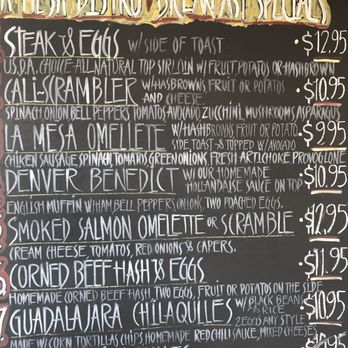 FRESH BISTRO BREAKFAST SPECIALS
STEAK & EGGS W/SIDE OF TOAST. $12.95
U.S.D.A. CHOICE-ALL NATURAL TOP SIRLOIN W/FRUIT, POTATOS OR HASHBROWN
CALI-SCRAMBLER W/HASBROWNS, FRUIT OR POTATOS AND CHEESE. $10.95
SPINACH ONION BELL PEPPERS TOMATOS AVOCADO ZUCCHINI, MUSHROOMS ASPARAGUS
LA MESA OMELETTE W/HASHBROWNS FRUIT OR POTATO, SIDE TOAST & TOPPED W/AVOCADO $9.95
CHIKEN SAUSAGE, SPINACH, TOMATOS GREEN ONIONS FRESH ARTICHOKE PROVOLONE
DENVER BENEDICT W/OUR HOMEMADE HOLLANDAISE SAUCE ON TOP $10.95
ENGLISH MUFFIN W/HAM BELL PEPPERS ONIONS, TWO POACHED EGGS.
SMOKED SALMON OMELETTE OR SCRAMBLE $12.95
CREAM CHEESE, TOMATOS, RED ONIONS & CAPERS.
CORNED BEEF HASH & EGGS $11.95
HOMEMADE CORNED BEEF HASH, TWO EGGS, FRUIT OR POTATOS ON THE SIDE
GUADALAJARA CHILAQUILES W/BLACK BEANS & RICE 2 EGGS ANY STYLE $10.95
MADE W/CORN TORTILLAS CHIPS HOMEMADE RED CHILI SAUCE, MIXED CHEESES